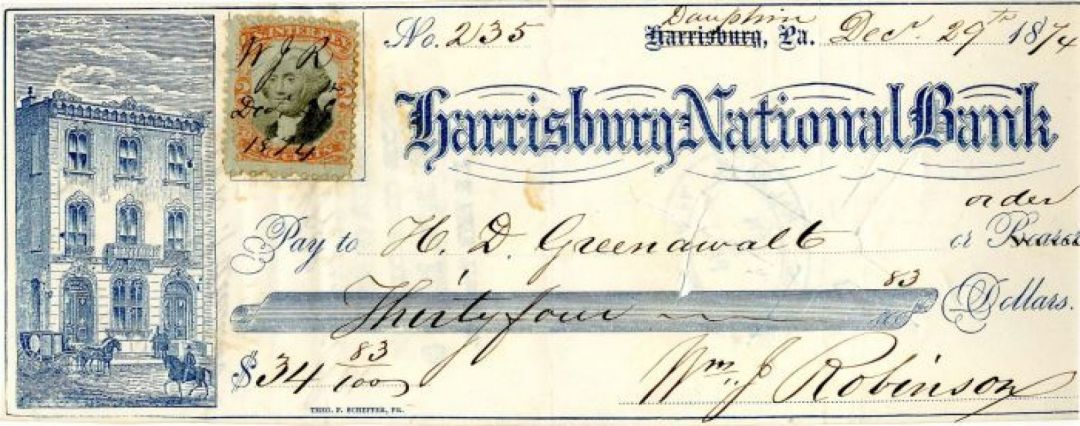 No. 235 Dauphin Harrisburg, Pa. Decr. 29th 1874
INTER. REV.
W J R
Dec
1874
Harrisburg National Bank
order
Pay to H. D. Greenawalt or Bearer
Thirty four 83 Dollars.
$34 83/100 Wm. J Robinson
THEO. F. SCHEFFER, PA.